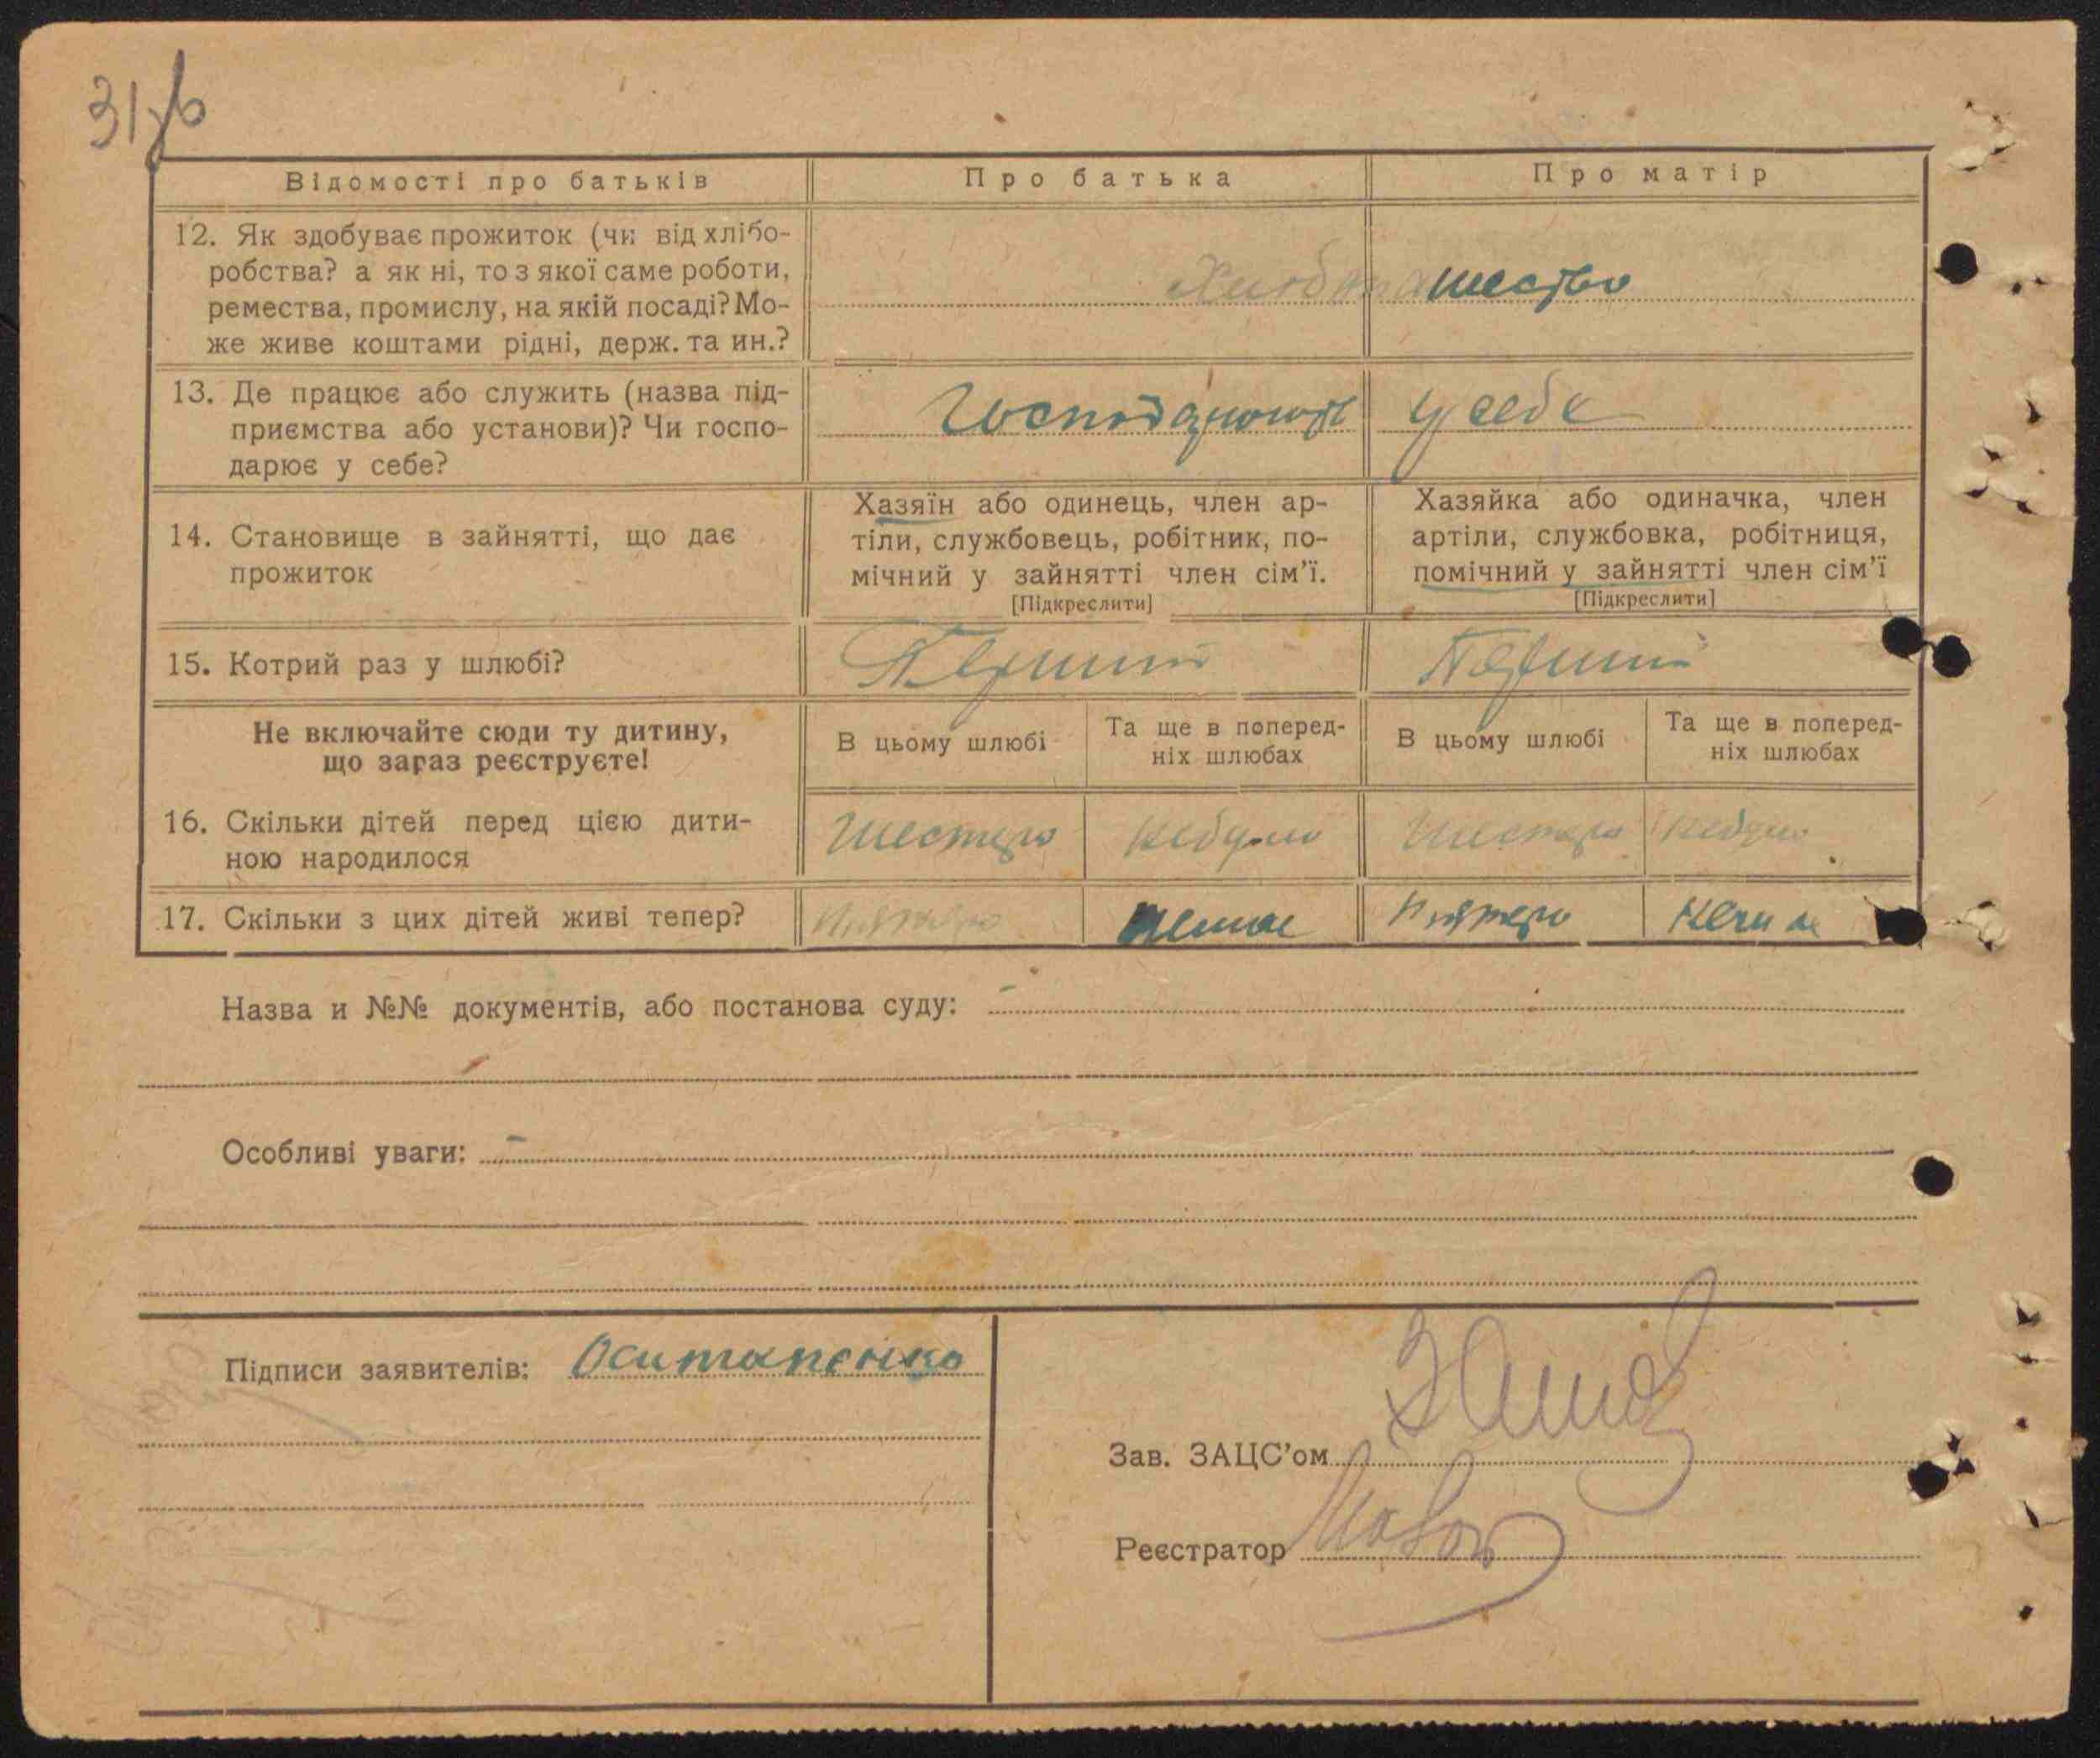 Відомості про батьків
Про батька
Про матір
12. Як здобуває прожиток (чи від хлібо-
робства? а як ні, то з якої саме роботи,
ремества, промислу, на якій посаді? Мо-
же живе коштами рідні, держ. та ин.?
13. Де працює або служить (назва під-
приємства або установи)? Чи госпо-
дарює у себе?
у себе
14. Становище в зайнятті, що дає
прожиток
Хазяїн або одинець, член ар-
тіли, службовець, робітник, по-
мічний у зайнятті член сім'ї.
[Підкреслити]
Хазяйка або одиначка, член
артіли, службовка, робітниця,
помічний у зайнятті член сім'ї
[Підкреслити]
15. Котрий раз у шлюбі?
Перший
Перший
Не включайте сюди ту дитину,
що зараз реєструєте!
В цьому шлюбі
Та ще в поперед-
ніх шлюбах
В цьому шлюбі
Та ще в поперед-
ніх шлюбах
16. Скільки дітей перед цією дити-
ною народилося
Шестеро
небуло
Шестеро
небуло
17. Скільки з цих дітей живі тепер?
Назва и №№ документів, або постанова суду: –
Особливі уваги: –
Підписи заявителів:
Зав. ЗАЦС'ом
Реєстратор